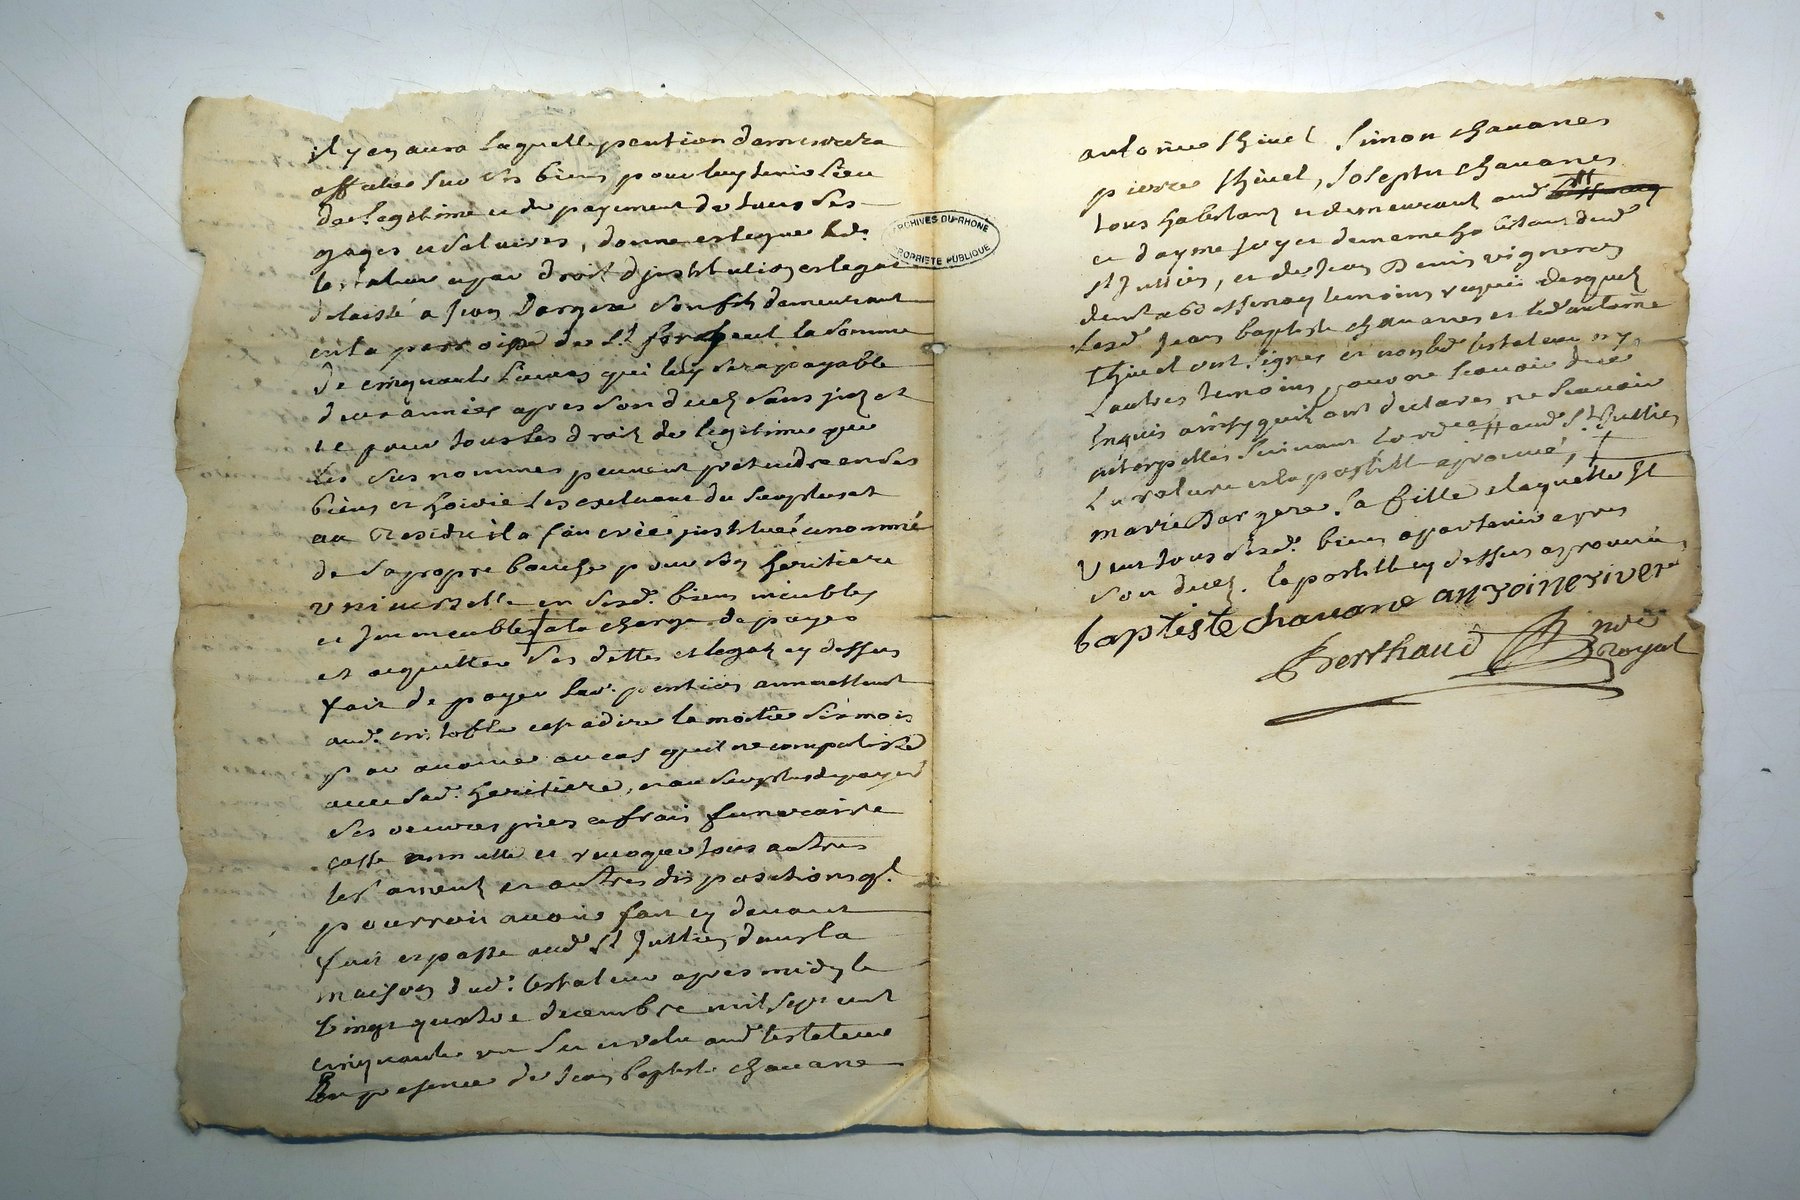 il y en aura laquelle pention demeurera
affectée sur ses biens pour luy tenir lieu
de legitime et de payement de tous ses
gages et salaires, donne et legue led.
testateur et par droit d'institution et legat
delaissé a Jean Dargere son fils demeurant
en la parroisse de St forgeul la somme
de cinquante livres qui luy sera payable
deux années apres son decez sans
et pour tous les droits de legitime que
les sus nommes peuvent pretendre en ses
biens et hoirie les excluant du surplus et
au Residu il a fait créé institué et nommé
de sa propre bouche pour son heritiere
universelle en sesd. biens meubles
et immeubles a la charge de payer
et acquitter ses dettes et legatz cy dessus
fait de payer lad. pention annuellement
aud. cristofle cest a dire la moitie six mois
par avance au cas quil ne compatisse
avec sad. heritiere, et au surplus de payer
ses oeuvres pies et frais funeraire
casse annulle et revoque tous autres
testamentz et autres dispositions ql.
pourroit avoir fait cy devant
fait et passé aud. St Jullien dans la
maison dud. testateur apres midy le
vingt quatre decembre mil sept cent
cinquante un leu et relu aud. testateur
En presence de Jean baptiste chavane
ARCHIVES DU RHÔNE
PROPRIETE PUBLIQUE
antoine thivel Simon chavanes
pierre thivel, Joseph chavanes
tous habitant et demeurant aud.
et d'ayme de meme habitant dud.
St Jullien, et de Jean Denis vigneron
temoins requis desquelz
lesd. Jean baptiste chavanes et led. antoine
thivel ont signes et non led. testateur ny
l'autres temoins pour ne scavoir de ce
Enquis ainsy quilz ont declares ne scavoir
interpelles suivant lord.ce # aud. St Jullien
la rature et la postille aprouvé, †
marie Dargere sa fille a laquelle Il
veut tous sesd. biens appartenir apres
son decez. la postille cy dessus aprouvée
baptiste chavane antoine tivet
Berthaud nore
royal